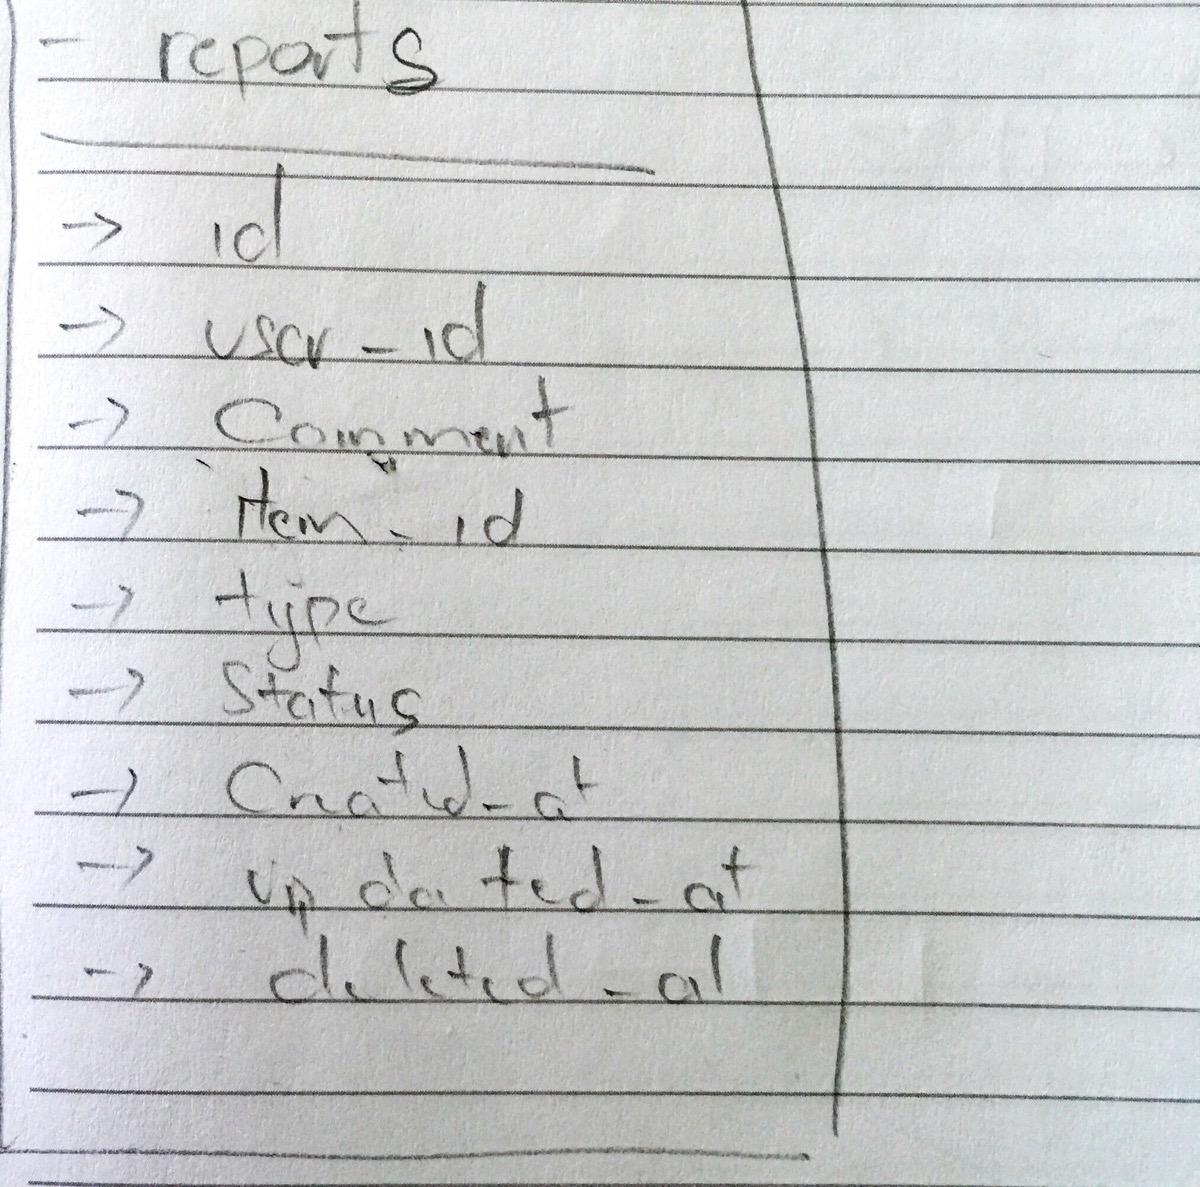 - reports
→ id
→ user_id
→ Comment
→ item_id
→ type
→ Status
→ Created_at
→ updated_at
→ deleted_at